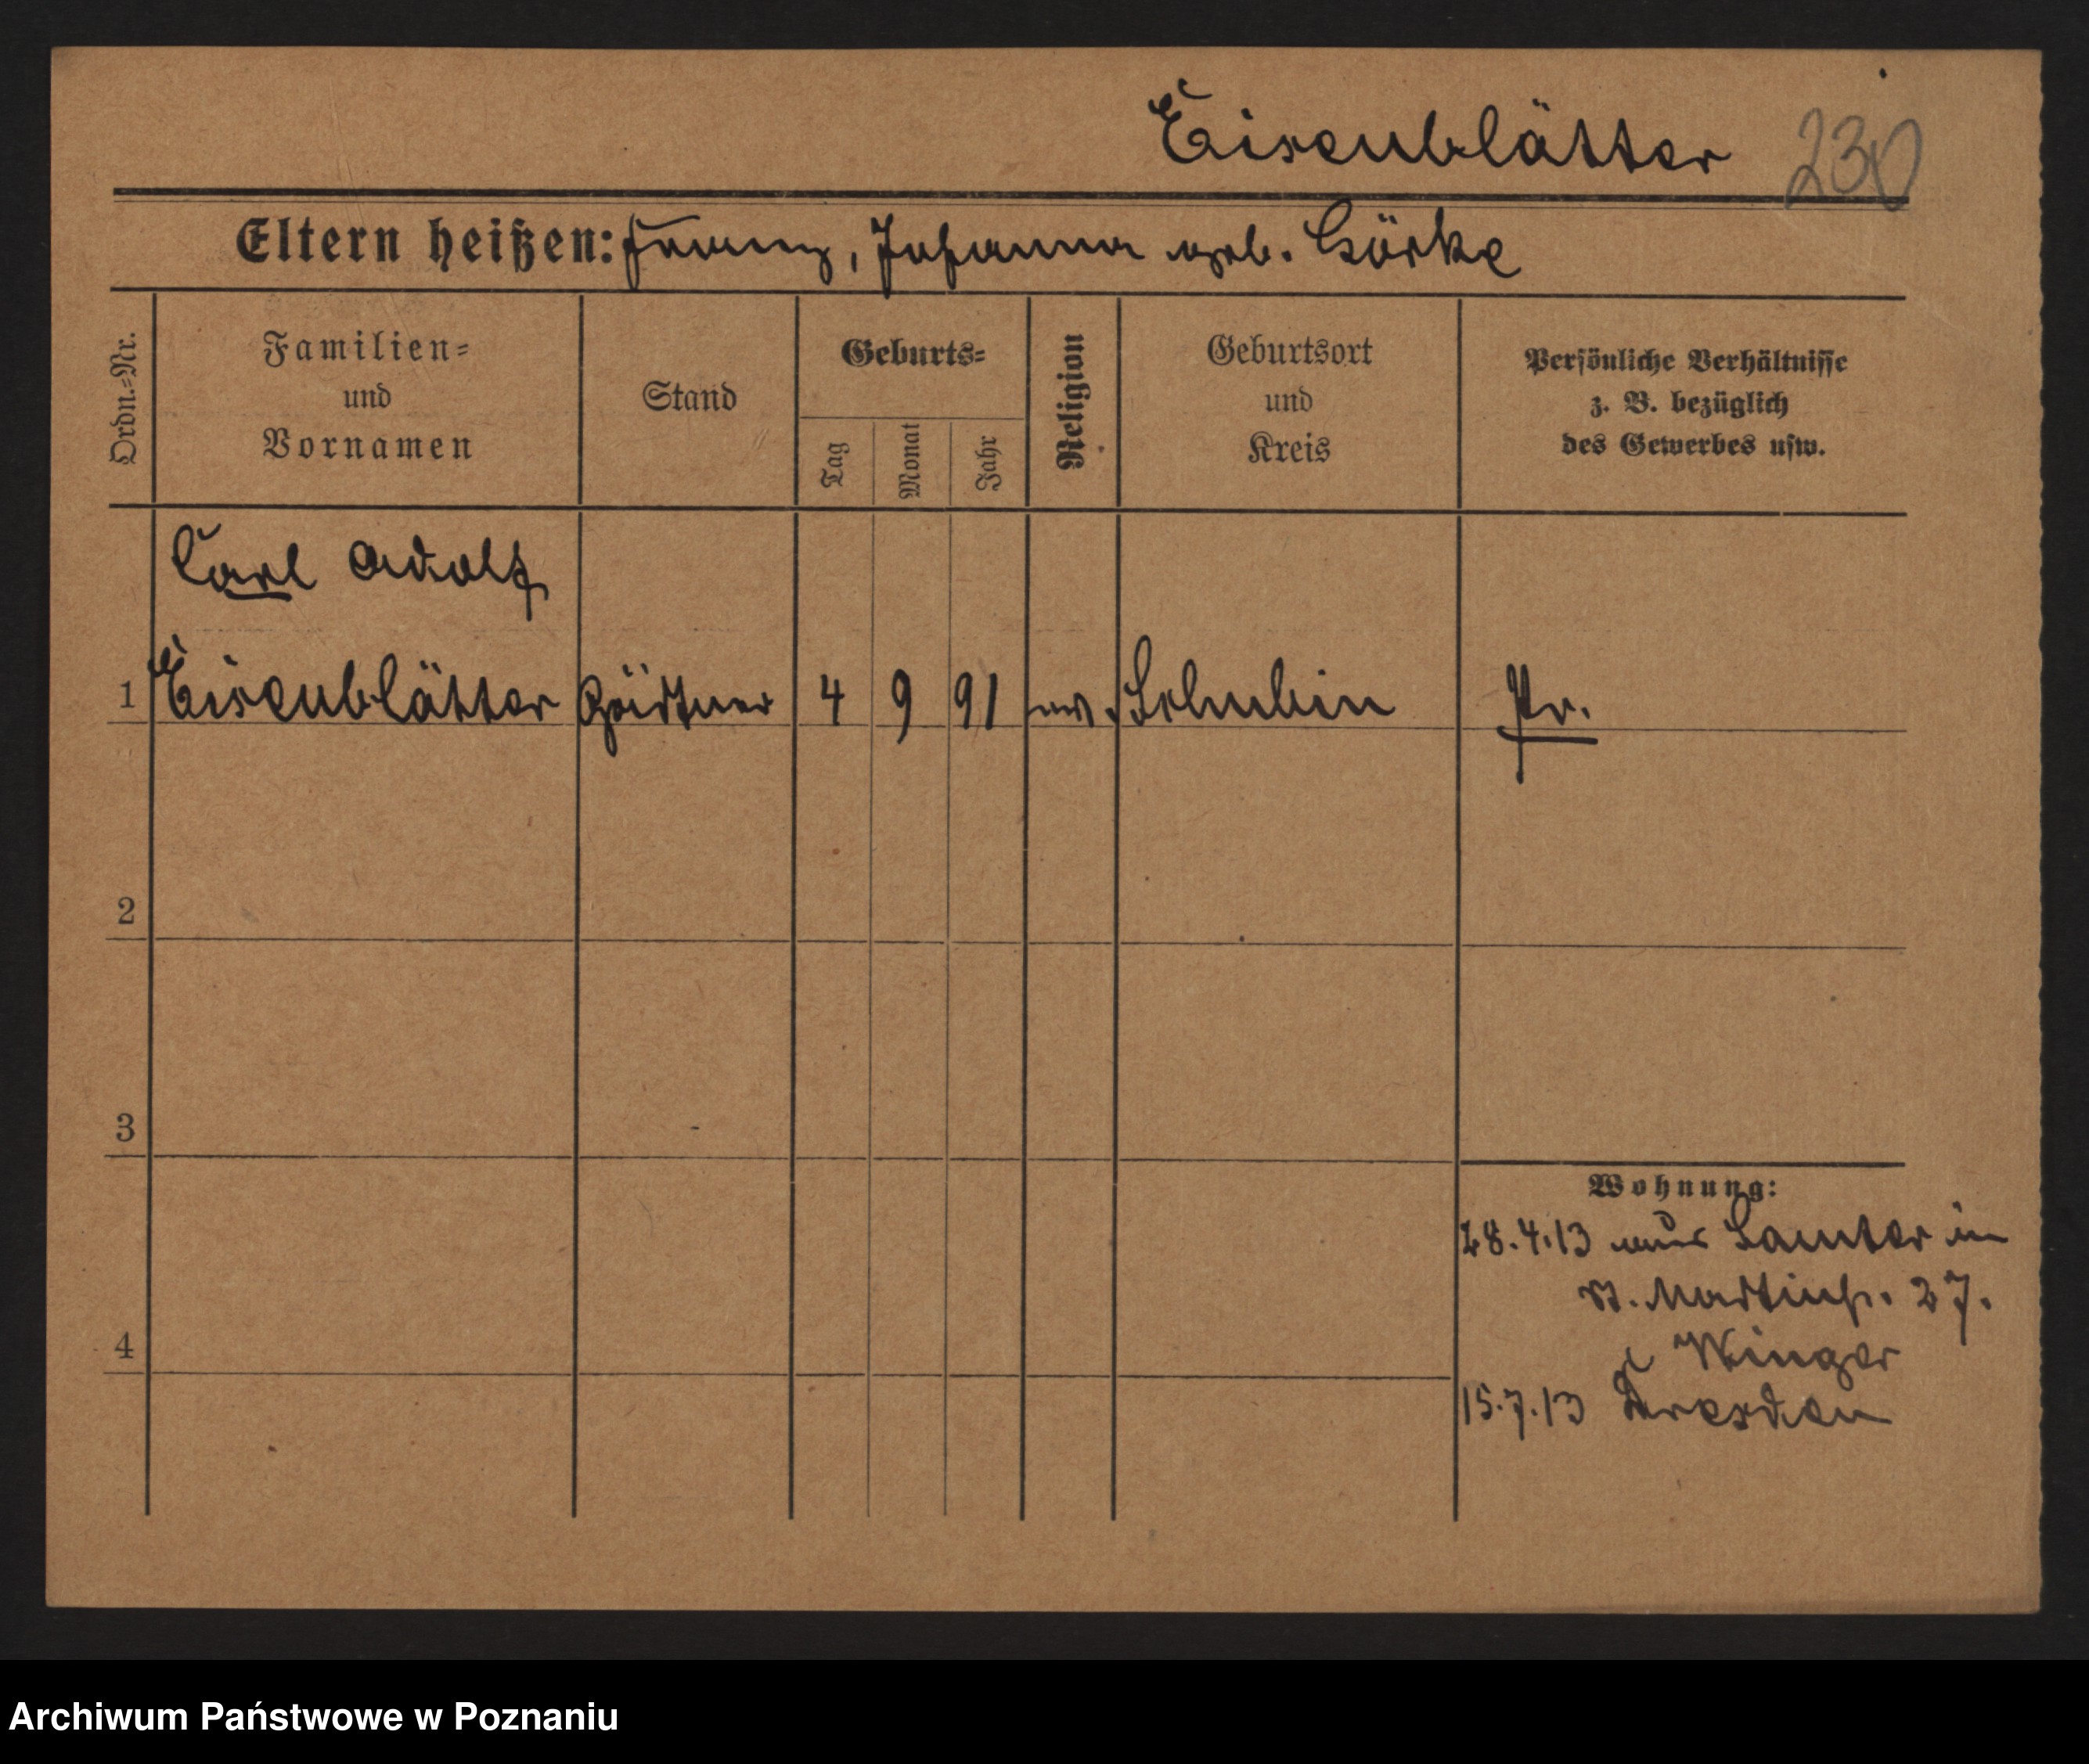 Eisenblätter 230
Eltern heißen: Franz, Johanna geb. Görke
Ordn.-Nr.
Familien-
und
Vornamen
Stand
Geburts-
Tag
Monat
Jahr
Religion
Geburtsort
und
Kreis
Persönliche Verhältnisse
z. B. bezüglich
des Gewerbes usw.
Carl Adolf
1 Eisenblätter Gärtner 4 9 91 ev. Schubin Pr.
2
3
Wohnung:
28.4.13 aus Samter in
St. Martinstr. 27.
4
Winger
15.7.13 Dresden
Archiwum Państwowe w Poznaniu